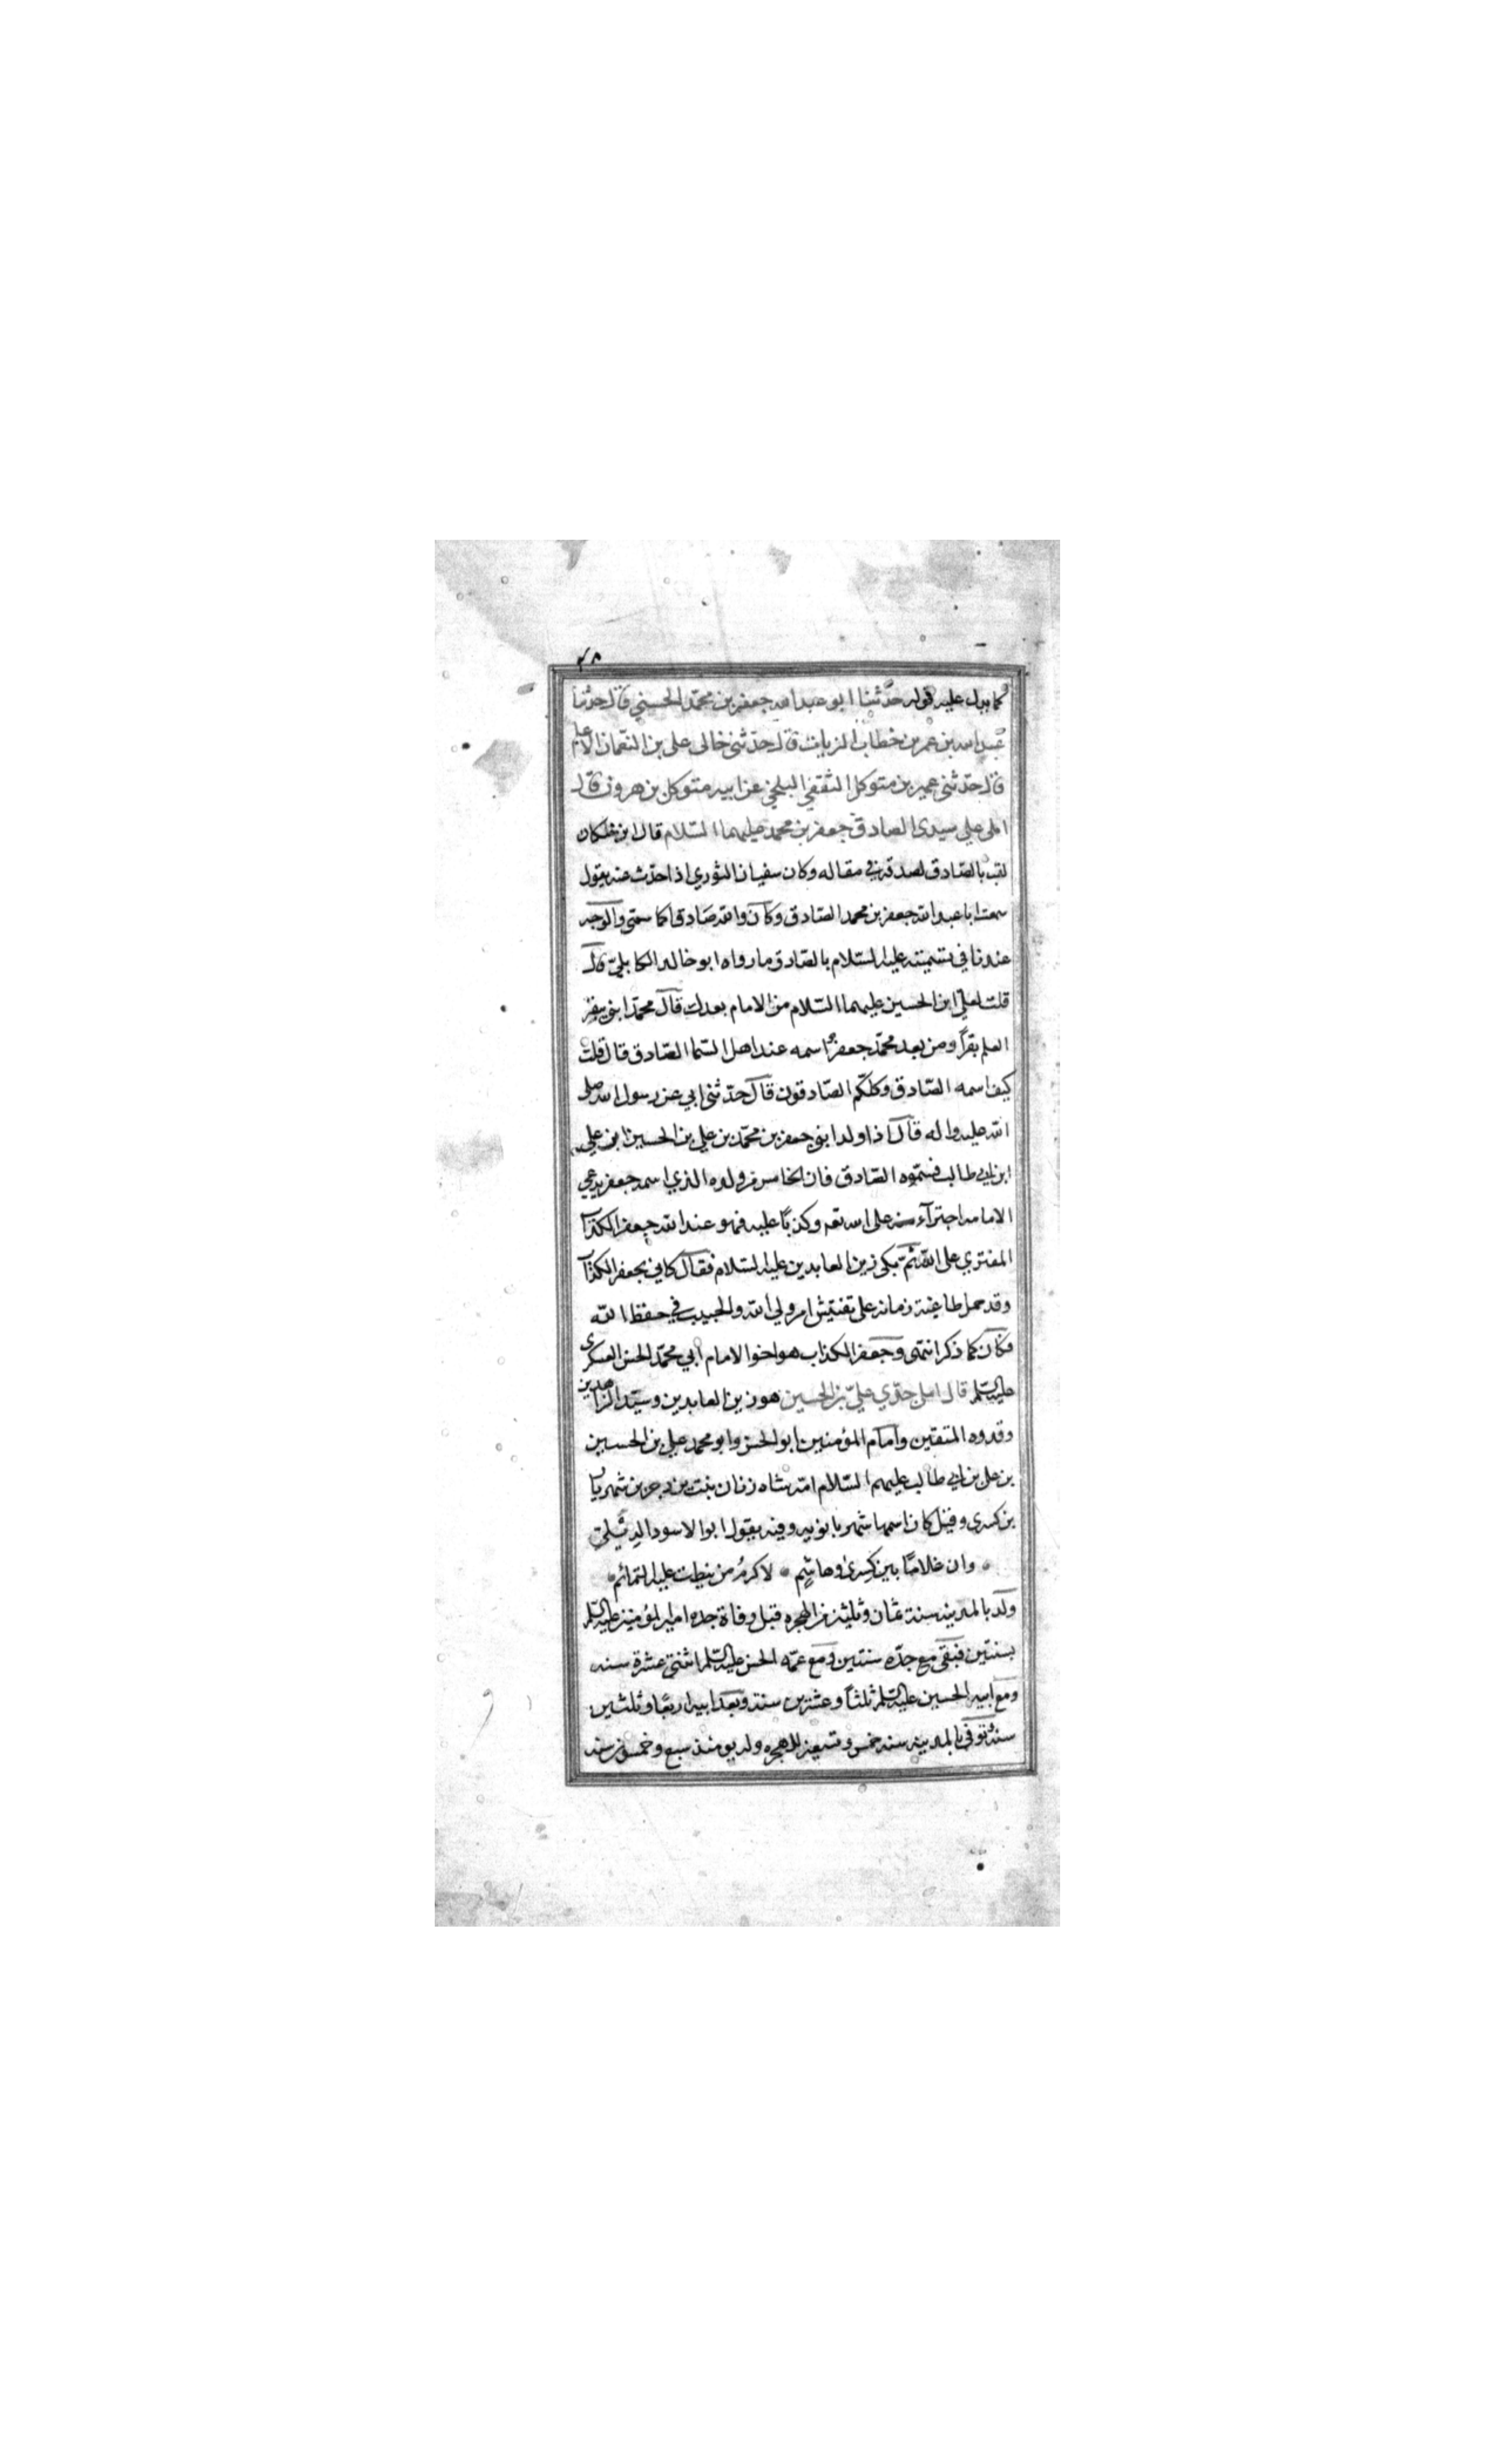 ٢٨
كما يدل عليه قوله حدّثنا ابو عبدالله جعفر بن محمّد الحسيني قال حدّثنا
عبدالله بن عمر بن خطاب الزيات قال حدّثني خالى على بن النعمان الاعلم
قال حدّثني عمير بن متوكل الثقفي البلخي عن ابيه متوكل بن هرون قال
املى علي سيدى الصادق جعفر بن محمد عليهما السّلام قال ابن خلكان
لقب بالصّادق لصدقه في مقاله وكان سفيان الثوري اذا حدّث عنه يقول
سمعت ابا عبدالله جعفر بن محمد الصّادق وكان والله صَادقا كما سمّى والوجه
عندنا في تسميته عليه السّلام بالصّادق ما رواه ابو خالد الكابليّ قال
قلت لعليّ ابن الحسين عليهما السّلام من الامام بعدك قال محمّد ابني يبقر
العلم بقراً ومن بعد محمّد جعفرٌ اسمه عند اهل السّما الصّادق قال قلت
كيف اسمه الصّادق وكلكم الصّادقون قال حدّثني ابي عن رسول الله صلى
الله عليه واله قال اذا ولد ابني جعفر بن محمّد بن علي بن الحسين ابن علي
ابن ابي طالب فسمّوه الصّادق فان الخامس من ولده الذي اسمه جعفر يدعي
الامامه اجترآء منه على الله تعه وكذبًا عليه فهو عند الله جعفر الكذاب
المفتري على الله ثمّ بكى زين العابدين عليه السّلام فقال كاني بجعفر الكذاب
وقد حمل طاغية زمانه على تفتيش امر ولي الله والحبيب في حفظ الله
فكان كما ذكر انتهى وجعفر الكذاب هو اخوا الامام ابي محمّد الحسن العسكرى
عليه السّلم قال امل جدّي عليّ بن الحسين هو زين العابدين وسيّد الزاهدين
وقدوه المتقين وامام المؤمنين ابو الحسن وابو محمد علي بن الحسين
بن على بن ابي طالب عليهم السّلام امّه شاه زنان بنت يزدجرد بن شهريار
بن كسرى وقيل كان اسمها شهر بانويه وفيه يقول ابوا الاسود الديلي
وان غلامًا بين كِسرىٰ وهاشمٍ لاكرمُ من نيطت عليه التمائم
ولد بالمدينه سنة ثمان وثلثين من الهجره قبل وفاة جده امير المؤمنين عليه السّلم
بسنتين فبقى مع جدّه سنتين ومع عمّه الحسن عليه السّلم اثنتي عشرة سنه
ومع ابيه الحسين عليه السّلم ثلثاً وعشرين سنة وبعد ابيه اربعًا وثلثين
سنه وتوفى بالمدينه سنه خمس وتسعين للهجره وله يومئذ سبع وخمسون سنه